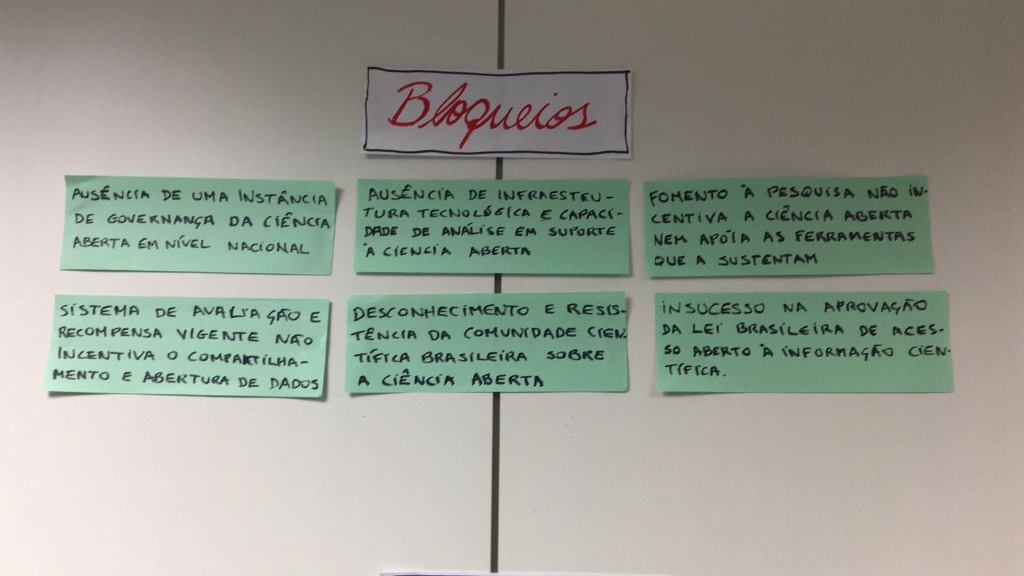 Bloqueios
AUSÊNCIA DE UMA INSTÂNCIA
DE GOVERNANÇA DA CIÊNCIA
ABERTA EM NÍVEL NACIONAL
AUSÊNCIA DE INFRAESTRU-
TURA TECNOLÓGICA E CAPACI-
DADE DE ANÁLISE EM SUPORTE
À CIENCIA ABERTA
FOMENTO À PESQUISA NÃO IN-
CENTIVA A CIÊNCIA ABERTA
NEM APÓIA AS FERRAMENTAS
QUE A SUSTENTAM
SISTEMA DE AVALIAÇÃO E
RECOMPENSA VIGENTE NÃO
INCENTIVA O COMPARTILHA-
MENTO E ABERTURA DE DADOS
DESCONHECIMENTO E RESIS-
TÊNCIA DA COMUNIDADE CIEN-
TÍFICA BRASILEIRA SOBRE
A CIÊNCIA ABERTA
INSUCESSO NA APROVAÇÃO
DA LEI BRASILEIRA DE ACES-
SO ABERTO À INFORMAÇÃO CIEN-
TÍFICA.